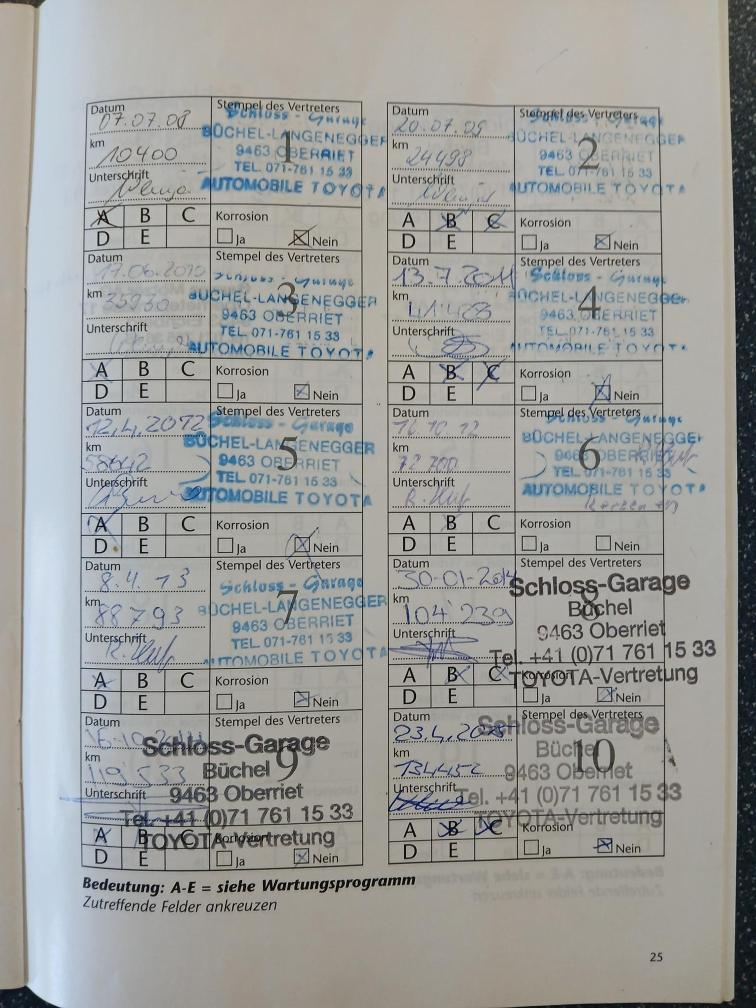 Datum
07.07.08
km
10400
Unterschrift
Stempel des Vertreters
Schloss - Garage
BÜCHEL-LANGENEGGER
1
9463 OBERRIET
TEL. 071-761 15 33
AUTOMOBILE TOYOTA
A B C
D E
Korrosion
Ja Nein
Datum
20.07.09
km
24498
Unterschrift
Stempel des Vertreters
Schloss - Garage
BÜCHEL-LANGENEGGER
2
9463 OBERRIET
TEL. 071-761 15 33
AUTOMOBILE TOYOTA
A B C
D E
Korrosion
Ja Nein
Datum
17.06.2010
km
35930
Unterschrift
Stempel des Vertreters
Schloss - Garage
BÜCHEL-LANGENEGGER
3
9463 OBERRIET
TEL. 071-761 15 33
AUTOMOBILE TOYOTA
A B C
D E
Korrosion
Ja Nein
Datum
13.7.2011
km
Unterschrift
Stempel des Vertreters
Schloss - Garage
BÜCHEL-LANGENEGGER
4
9463 OBERRIET
TEL. 071-761 15 33
AUTOMOBILE TOYOTA
A B C
D E
Korrosion
Ja Nein
Datum
12.4.2012
km
58642
Unterschrift
Stempel des Vertreters
Schloss - Garage
BÜCHEL-LANGENEGGER
5
9463 OBERRIET
TEL. 071-761 15 33
AUTOMOBILE TOYOTA
A B C
D E
Korrosion
Ja Nein
Datum
16 10 12
km
Unterschrift
Stempel des Vertreters
Schloss - Garage
BÜCHEL-LANGENEGGER
6
9463 OBERRIET
TEL. 071-761 15 33
AUTOMOBILE TOYOTA
A B C
D E
Korrosion
Ja Nein
Datum
8.4.13
km
88793
Unterschrift
Stempel des Vertreters
Schloss - Garage
BÜCHEL-LANGENEGGER
7
9463 OBERRIET
TEL. 071-761 15 33
AUTOMOBILE TOYOTA
A B C
D E
Korrosion
Ja Nein
Datum
30-01-2014
km
104'239
Unterschrift
Stempel des Vertreters
Schloss-Garage
8
Büchel
9463 Oberriet
Tel. +41 (0)71 761 15 33
TOYOTA-Vertretung
A B C
D E
Korrosion
Ja Nein
Datum
km
119'533
Unterschrift
Stempel des Vertreters
Schloss-Garage
Büchel
9
9463 Oberriet
Tel. +41 (0)71 761 15 33
TOYOTA-Vertretung
A B C
D E
Korrosion
Ja Nein
Datum
23.4.2015
km
134452
Unterschrift
Stempel des Vertreters
Schloss-Garage
Büchel
10
9463 Oberriet
Tel. +41 (0)71 761 15 33
TOYOTA-Vertretung
A B C
D E
Korrosion
Ja Nein
Bedeutung: A-E = siehe Wartungsprogramm
Zutreffende Felder ankreuzen
25